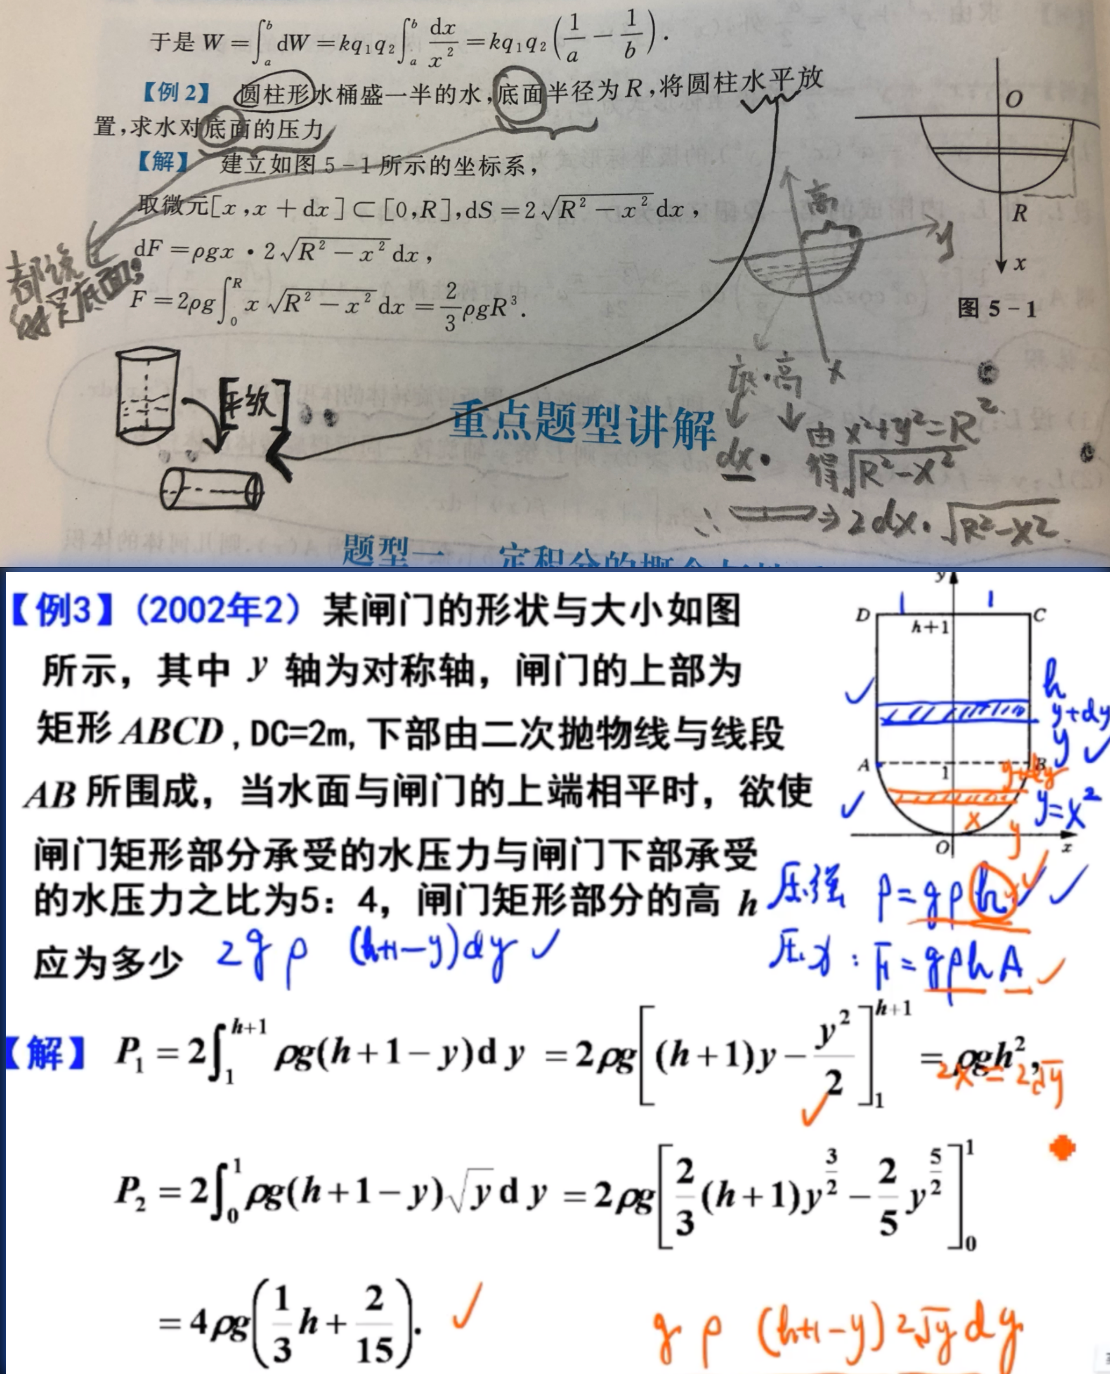 于是 W = ∫_a^b dW = kq₁q₂ ∫_a^b dx/x² = kq₁q₂ (1/a − 1/b).
【例 2】 圆柱形水桶盛一半的水,底面半径为 R,将圆柱水平放
置,求水对底面的压力.
【解】 建立如图 5-1 所示的坐标系,
取微元[x,x+dx]⊂[0,R],dS=2√(R²−x²)dx,
dF=ρgx·2√(R²−x²)dx,
F=2ρg∫_0^R x√(R²−x²)dx=2/3 ρgR³.
O
R
x
图 5-1
都说
的是底面!
高
y
x
底·高
dx·
由x²+y²=R²
得√(R²−x²)
∴ ⇒ 2dx·√(R²−x²)
重点题型讲解
题型一 定积分的概念
【例3】(2002年2) 某闸门的形状与大小如图
所示，其中 y 轴为对称轴，闸门的上部为
矩形 ABCD, DC=2m, 下部由二次抛物线与线段
AB 所围成，当水面与闸门的上端相平时，欲使
闸门矩形部分承受的水压力与闸门下部承受
的水压力之比为5：4，闸门矩形部分的高 h
应为多少
y
1 1
D h+1 C
h
y+dy
y
A 1 B
y+dy
y=x²
x
y
O x
压强 P=gρh
压力：F=gρhA
2gρ (h+1−y)dy
【解】 P₁ = 2∫_1^{h+1} ρg(h+1−y)dy = 2ρg[(h+1)y − y²/2]_1^{h+1} = ρgh²,
2x=2√y
P₂ = 2∫_0^1 ρg(h+1−y)√y dy = 2ρg[2/3(h+1)y^{3/2} − 2/5 y^{5/2}]_0^1
= 4ρg(1/3 h + 2/15).
gρ (h+1−y)2√y dy